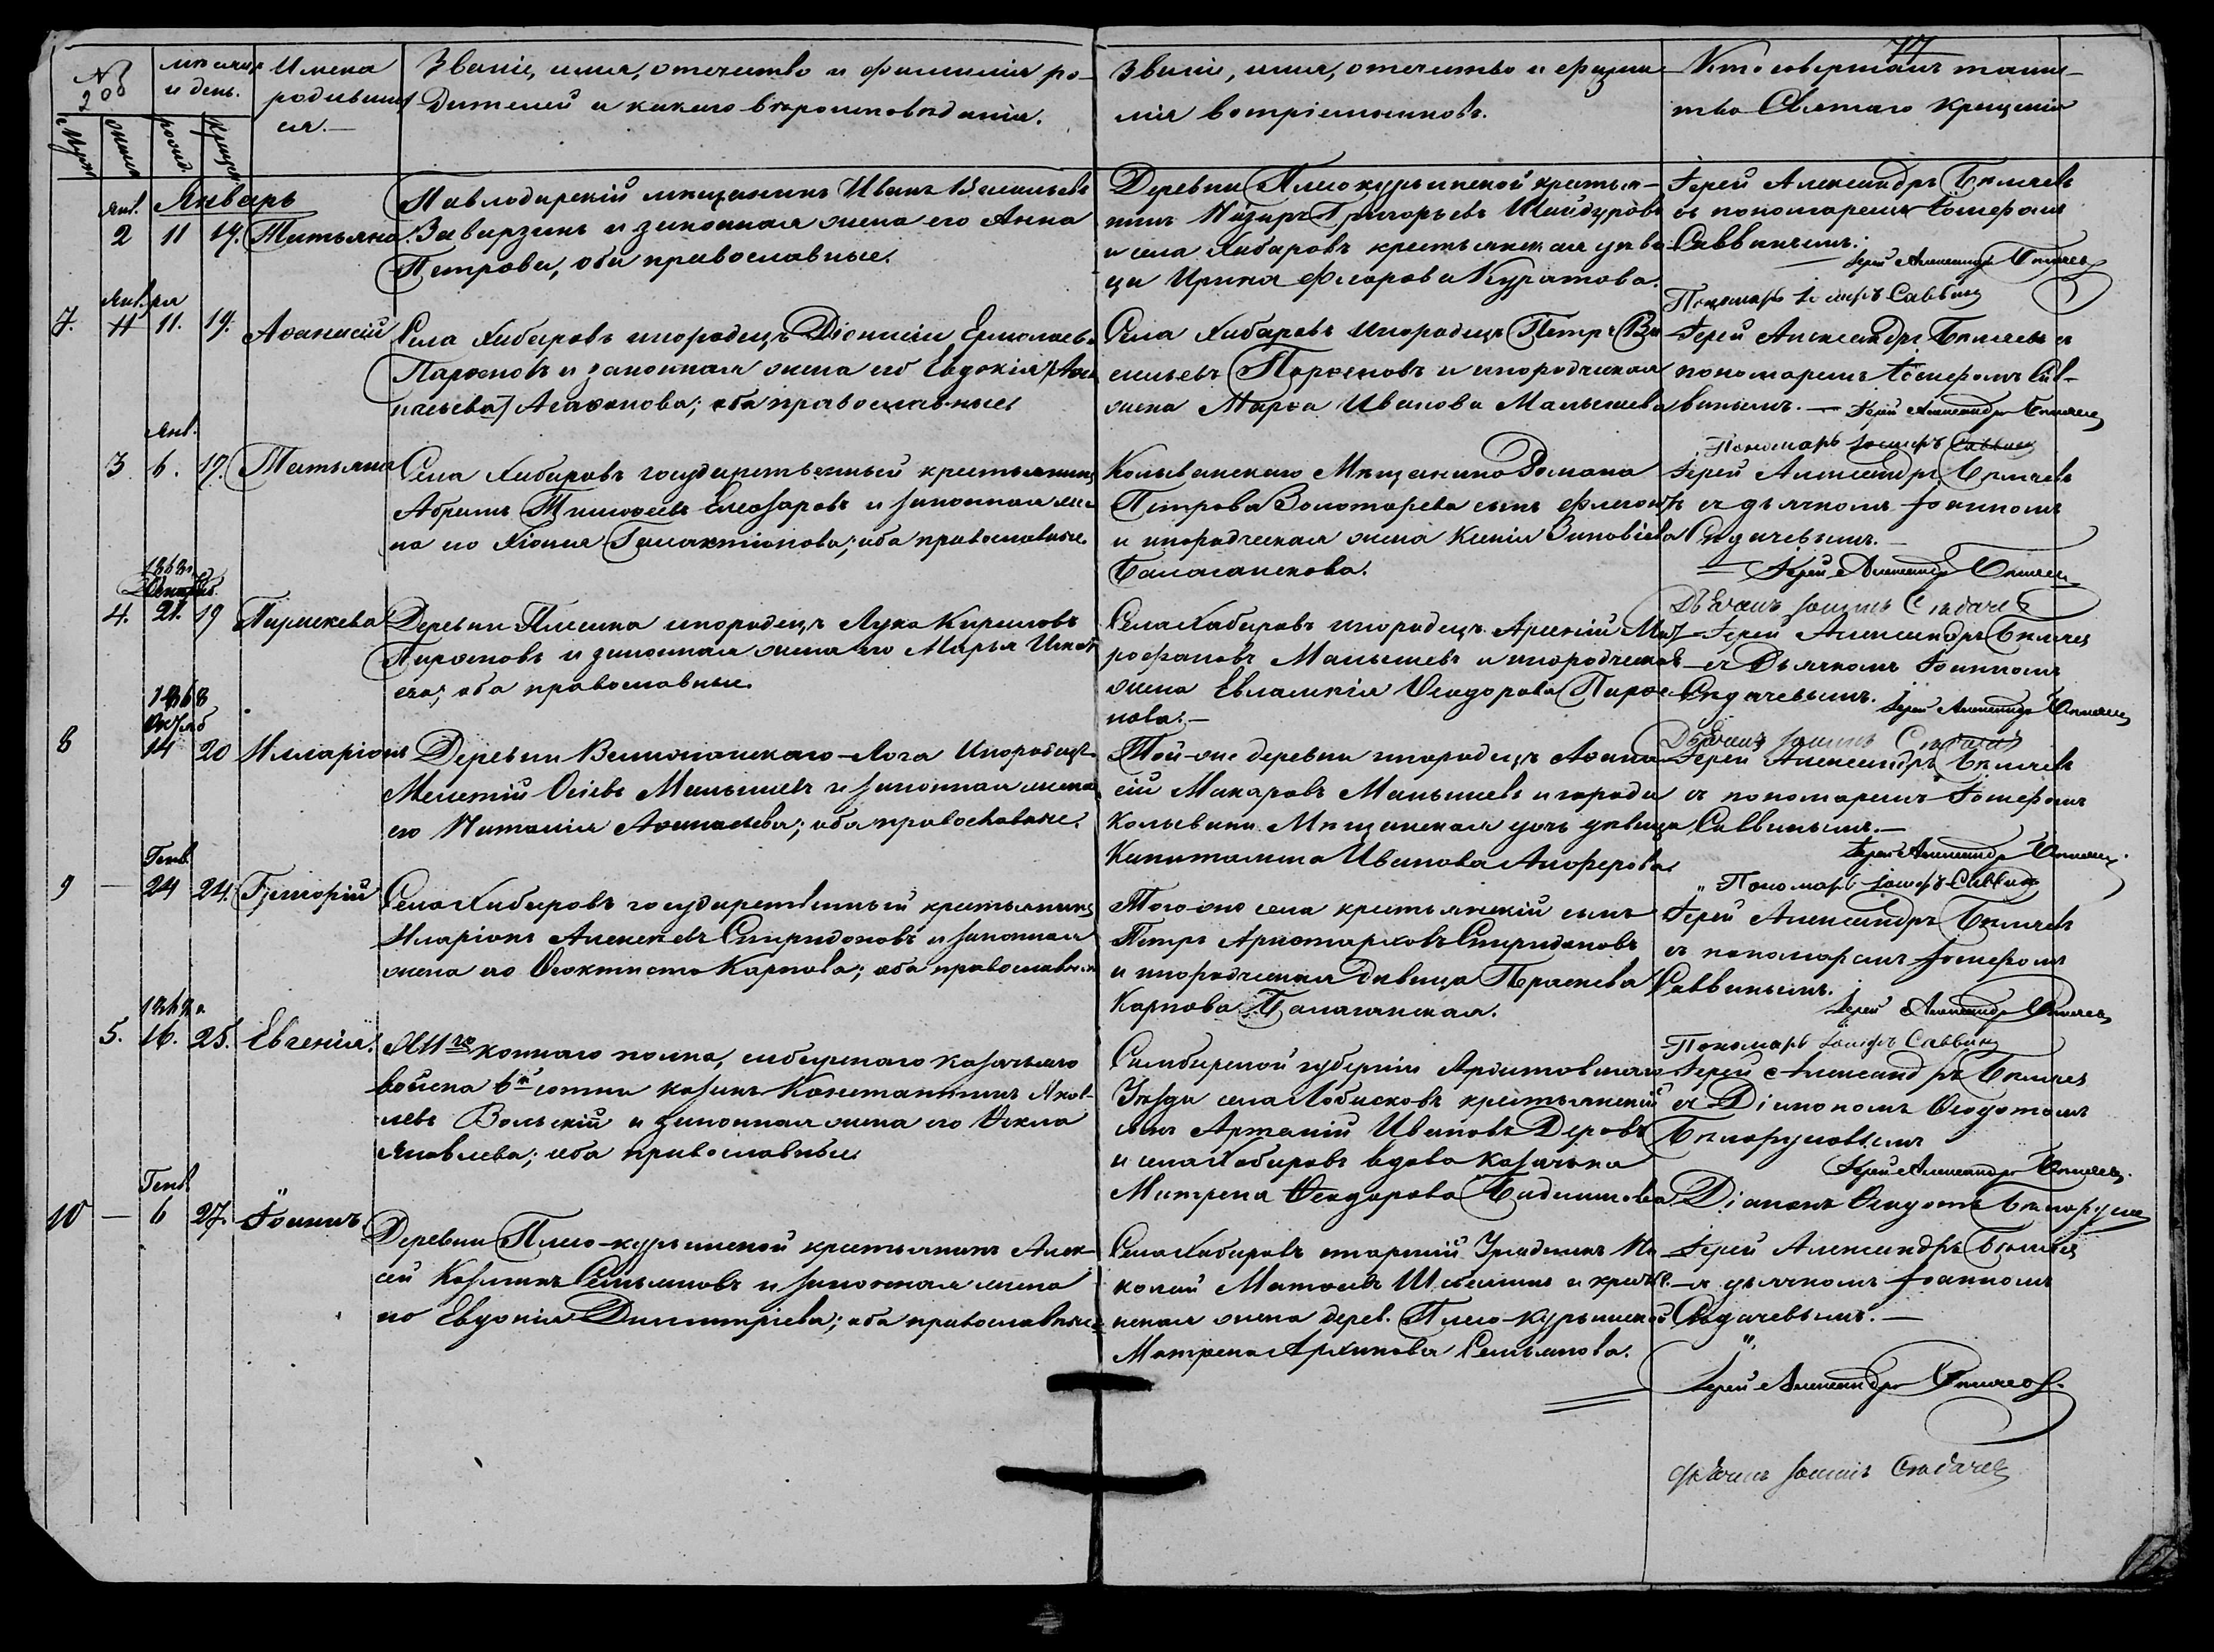 №
родовъ
Муж.
женск.
мѣсяцъ
и день.
рожд.
крещен.
Имена
родивших
ся.—
Званіе, имя, отечество и фамилія ро-
дителей и какого вѣроисповѣданія.
Званіе, имя, отечество и фами-
лія воспріемниковъ.
Кто совершалъ таин-
ство Святаго крещенія
Январь
Янв.
2 11 19. Татьяна.
Павлодарскій мѣщанинъ Иванъ Васильевъ
Завирзинъ и законная жена его Анна
Петрова, оба православные.
Деревни Плеокурьинской крестья-
нинъ Назаръ Григорьевъ Шайдуровъ
и села Хабаровъ крестьянская дѣви
ца Ирина Флорова Куратова.
Іерей Александръ Бѣляевъ
съ пономаремъ Іосифомъ
Саввинымъ.
Іерей Александръ Бѣляевъ
Пономарь Іосифъ Саввинъ
Января
7. 11 11. 19. Аѳанасій
Села Хабаровъ инородецъ Діонисій Ермолаевъ
Парѳеновъ и законная жена его Евдокія (Аѳа
насьева) Агаѳонова; оба православные.
Села Хабаровъ инородецъ Петръ Ва
сильевъ Парѳеновъ и инородческая
жена Марѳа Иванова Малышева
Іерей Александръ Бѣляевъ съ
пономаремъ Іосифомъ Сав-
винымъ.— Іерей Александръ Бѣляевъ
Пономарь Іосифъ Саввинъ
Янв.
3 6. 19. Татьяна
Села Хабаровъ государственный крестьянинъ
Абрамъ Тимоѳеевъ Елеазаровъ и законная же-
на его Хіонія Галактіонова; оба православные.
Колыванскаго Мѣщанина Романа
Петрова Золотарева сынъ Флегонтъ
и инородческая жена Ксенія Зиновіева
Балаганскова.
Іерей Александръ Бѣляевъ
съ дьячкомъ Іоанномъ
Сѣдачевымъ.—
Іерей Александръ Бѣляевъ
Дьячекъ Іоаннъ Сѣдачевъ
1868 г.
Октяб.
4. 21. 19 Параскева
Деревни Плесина инородецъ Лука Кириловъ
Парѳеновъ и законная жена его Марья
оба православные.
Села Хабаровъ инородецъ Арсеній Мит
рофановъ Малышевъ и инородческая
жена Евлампія Ѳеодорова Парѳе-
нова.—
Іерей Александръ Бѣляевъ
съ Дьячкомъ Іоанномъ
Сѣдачевымъ. Іерей Александръ Бѣляевъ
Дьячекъ Іоаннъ Сѣдачевъ
1868
Октяб
8 14 20 Илларіонъ
Деревни Лога Инородецъ
Мелетій Осіевъ Малышевъ и законная жена
его Наталія Аѳанасьева; оба православные.
Той-же деревни инородецъ Аѳана-
сій Макаровъ Малышевъ и города
Колывани Мѣщанская дочь дѣвица
Капитолина Иванова Алферова.
Іерей Александръ Бѣляевъ
съ пономаремъ Іосифомъ
Саввинымъ.—
Іерей Александръ Бѣляевъ.
Пономарь Іосифъ Саввинъ
Генв.
9 — 24 24. Григорій
Села Хабаровъ государственный крестьянинъ
Иларіонъ Алексѣевъ Спиридоновъ и законная
жена его Ѳеоктиста Карпова; оба православные
Того-же села крестьянскій сынъ
Петръ Аристарховъ Спиридоновъ
и инородческая дѣвица Параскева
Карпова Балаганская.
Іерей Александръ Бѣляевъ
съ пономаремъ Іосифомъ
Саввинымъ.
Іерей Александръ Бѣляевъ
Пономарь Іосифъ Саввинъ
5. 16. 25. Евгенія.
коннаго полка, сибирскаго казачьяго
войска 6й сотни казакъ Константинъ Яков-
левъ Вольскій и законная жена его Ѳекла
Яковлева; оба православные
Симбирской губерніи Ардатовскаго
Уѣзда села Лобасковъ крестьянскій
сынъ Артамій Ивановъ Деровъ
и села Хабаровъ вдова казачька
Матрена Ѳеодорова
Іерей Александръ Бѣляевъ
съ Діакономъ Ѳеодотомъ
Бѣлорусовымъ
Іерей Александръ Бѣляевъ.
Діаконъ Ѳеодотъ Бѣлорусовъ
Генв.
10 — 6 27. Іоаннъ.
Деревни Плесо-курьинской крестьянинъ Алек-
сѣй Козминъ Сельяновъ и законная жена
его Евдокія Димитріева; оба православные
Села Хабаровъ старшій Урядникъ Ни
колай Матѳеевъ и кресть-
янская жена дерев. Плесо-курьинской
Матрена Архипова Сельянова.
Іерей Александръ Бѣляевъ
съ дьячкомъ Іоанномъ
Сѣдачевымъ.—
Іерей Александръ Бѣляевъ.
Дьячекъ Іоаннъ Сѣдачевъ